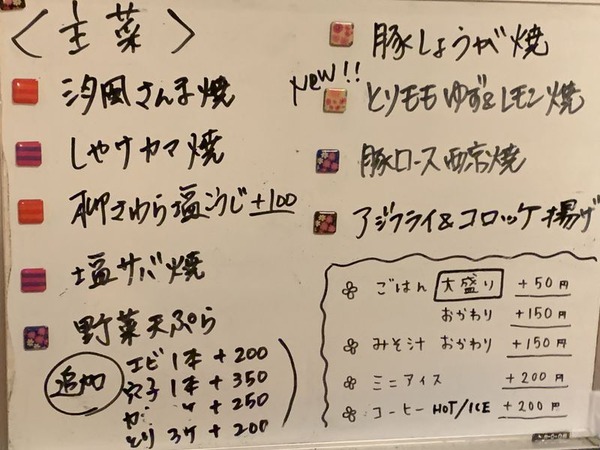 〈主菜〉
汐風さんま焼
しゃけカマ焼
さわら塩こうじ+100
塩サバ焼
野菜天ぷら
追加
エビ 1本 +200
穴子 1本 +350
+250
とり 3ケ +200
豚しょうが焼
New!!
とりモモゆず&レモン焼
豚ロース西京焼
アジフライ&コロッケ揚げ
ごはん 大盛り +50円
おかわり +150円
みそ汁 おかわり +150円
ミニアイス +200円
コーヒー HOT/ICE +200円